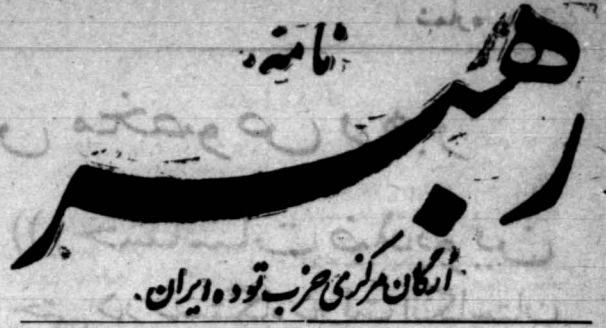 نامه
رهبر
ارگان مرکزی حزب توده ایران.